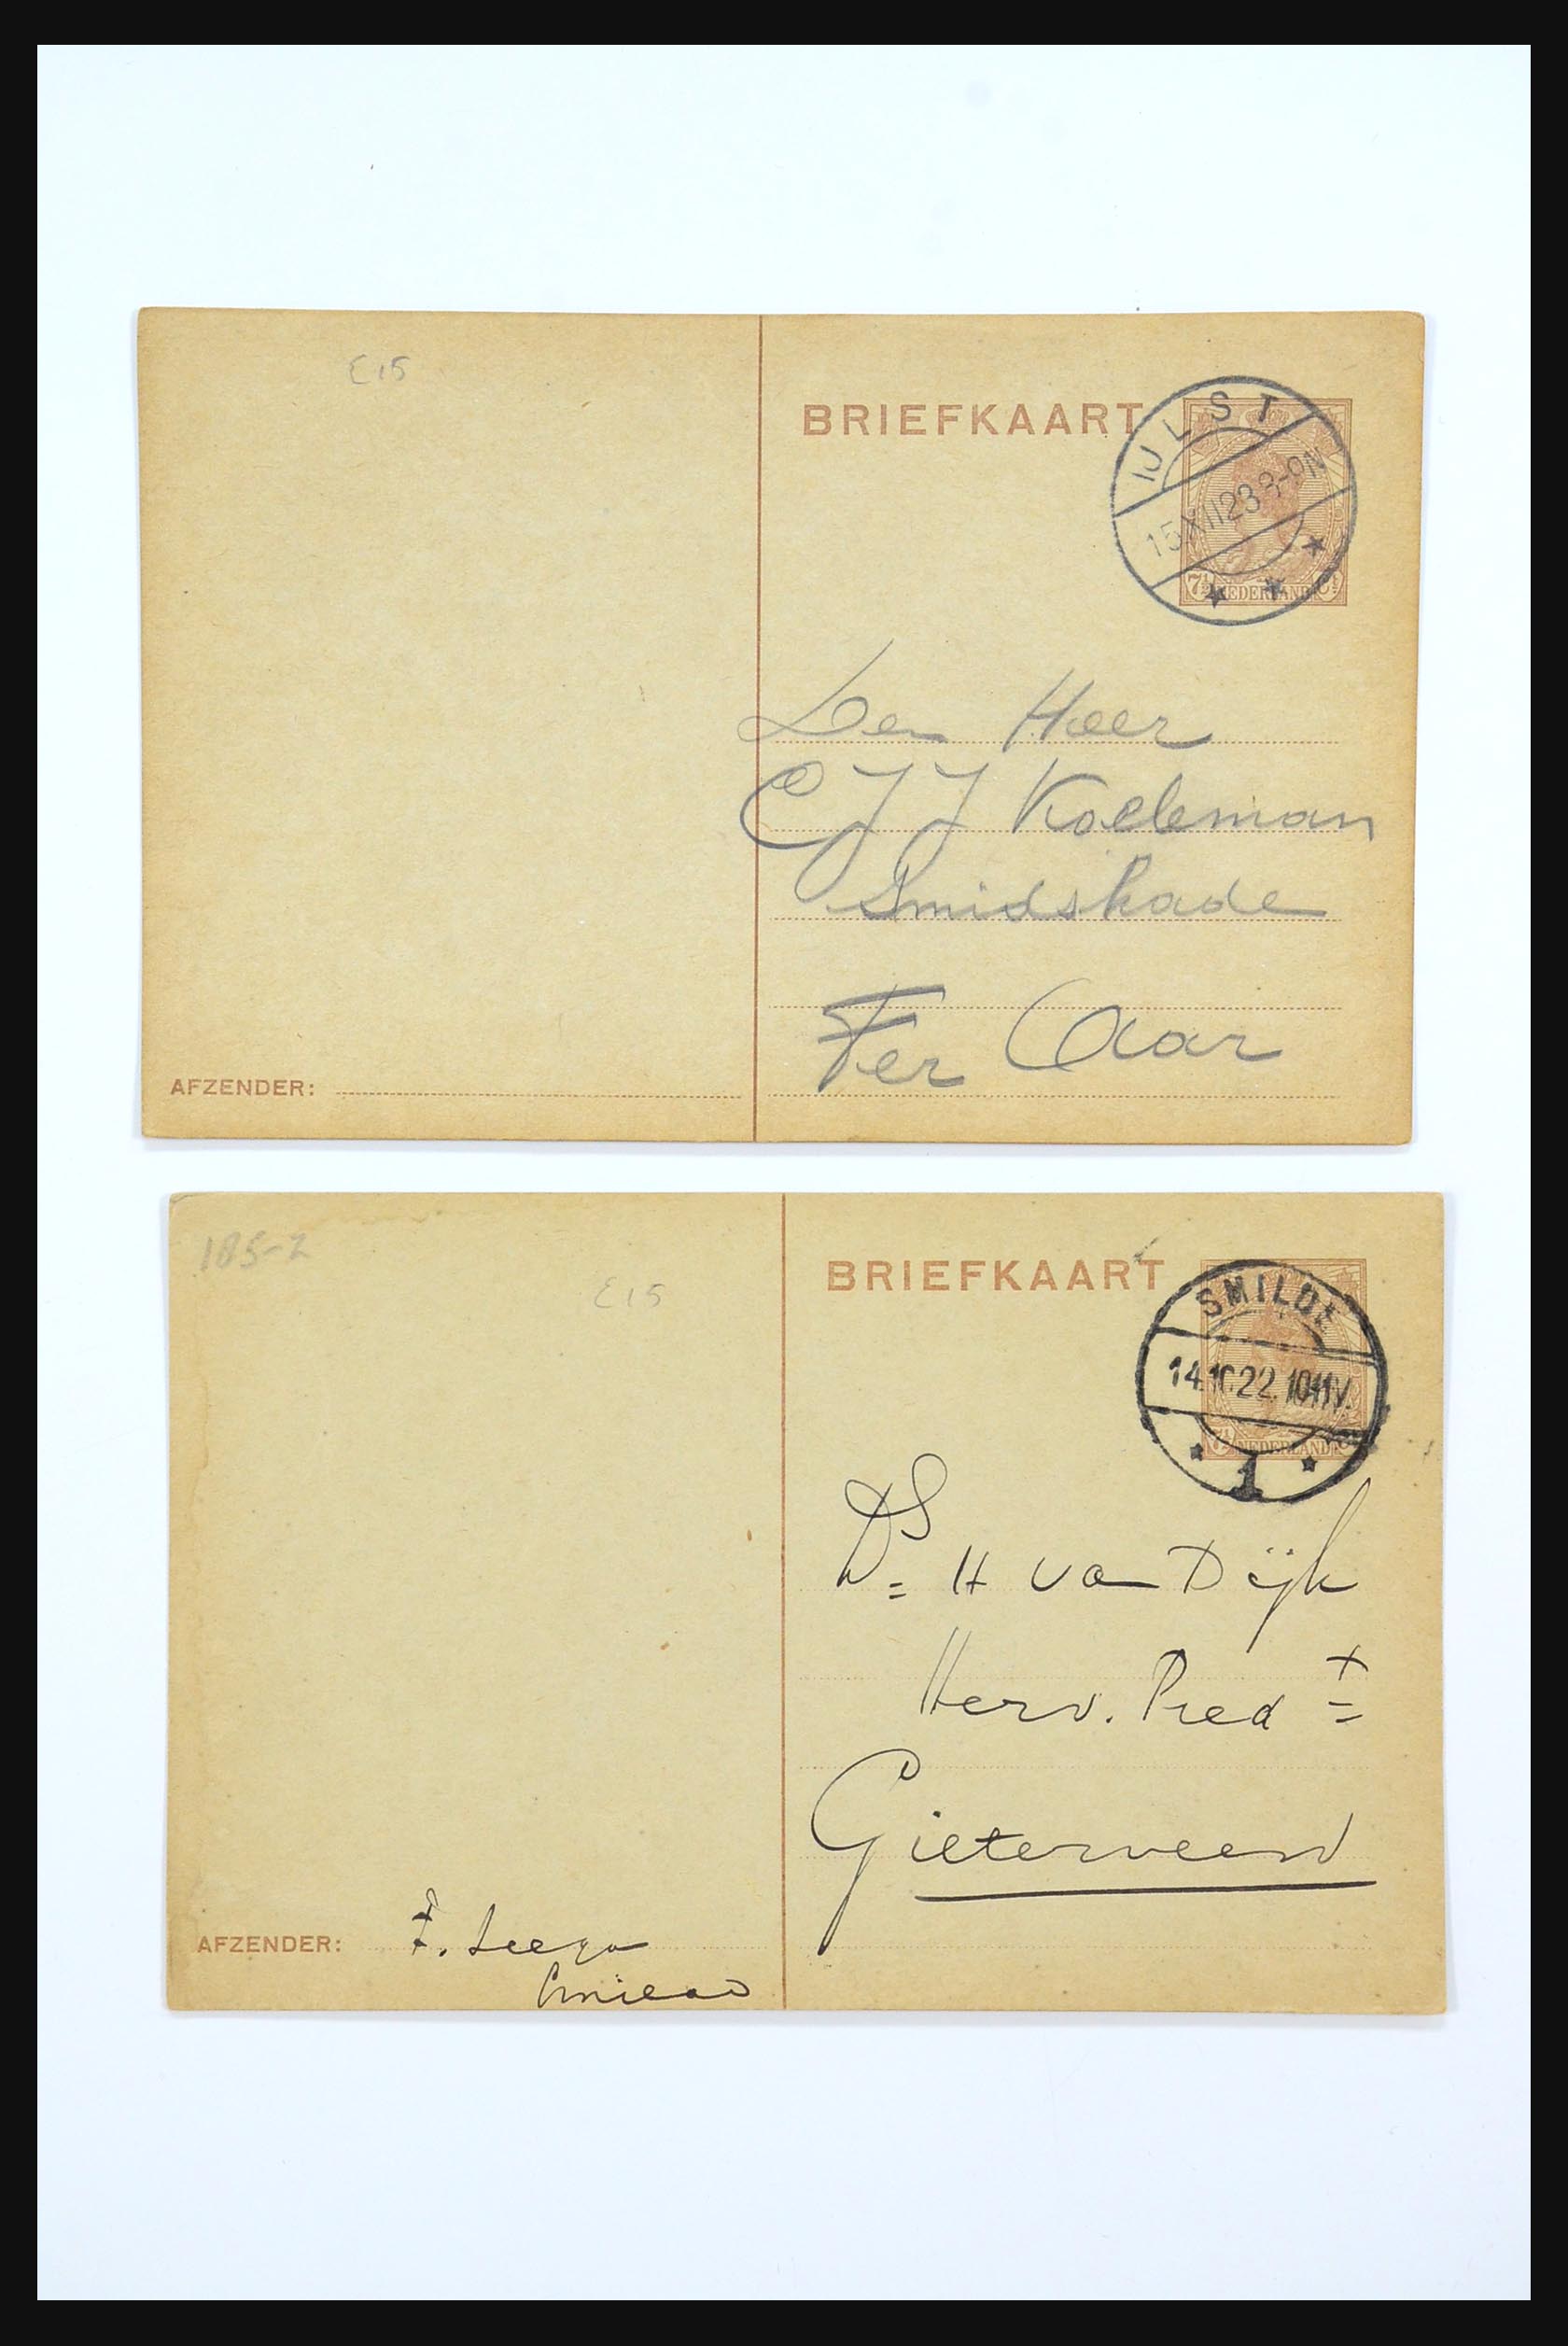 E15
BRIEFKAART
IJLST
15 XII 23 8-9N
7½ NEDERLAND
Den Heer
C J J Koeleman
Smidskade
Ter Aar
AFZENDER:
185-2
E15
BRIEFKAART
SMILDE
14.10.22.10-11V.
1
7½ NEDERLAND
Ds H van Dijk
Herv. Pred t
Gieterveen
AFZENDER: F.